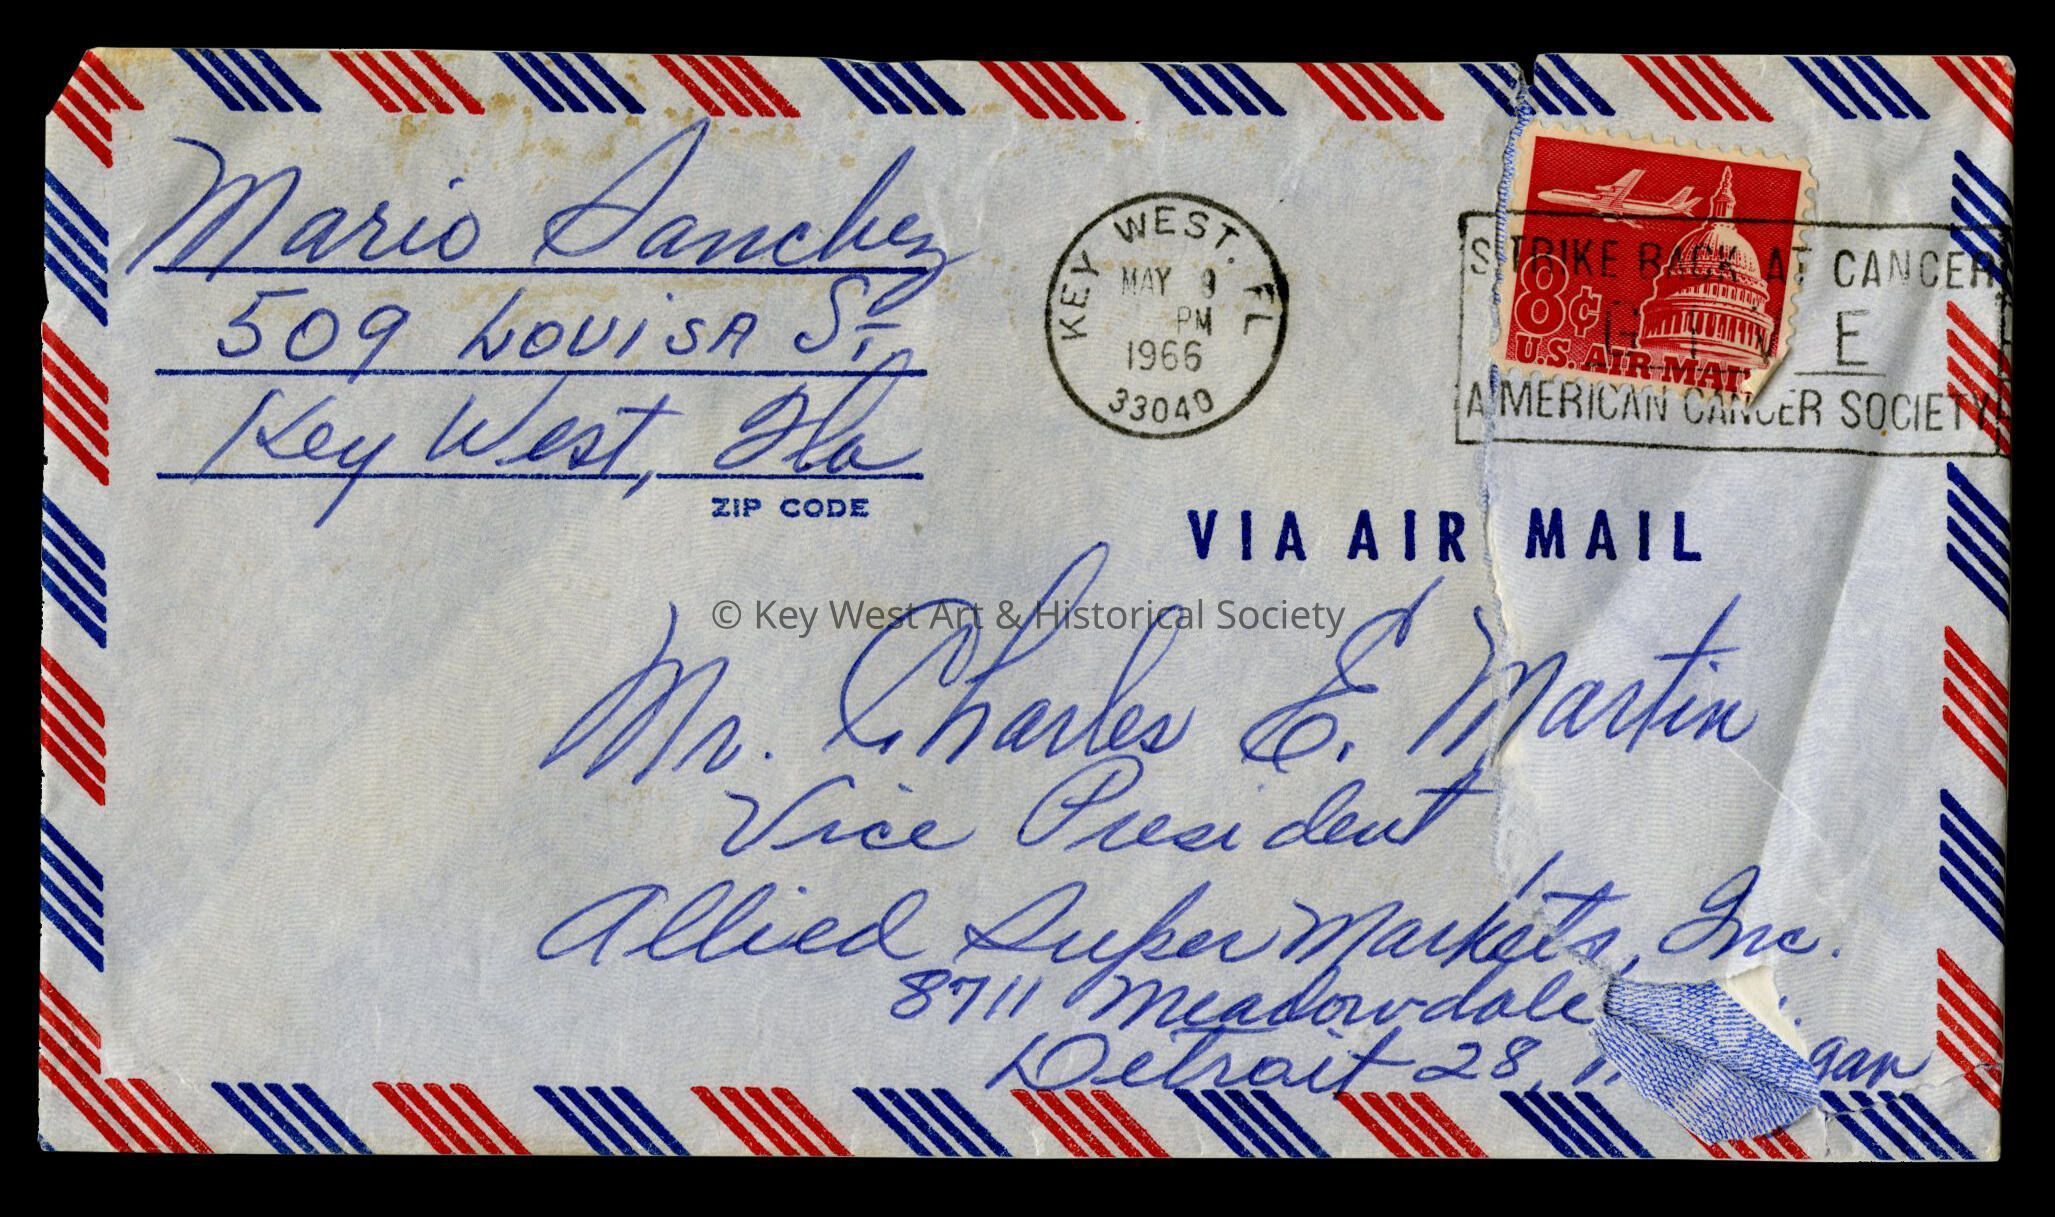 Mario Sanchez
509 LOUISA St.
Key West, Fla
ZIP CODE
KEY WEST. FL
MAY 9
PM
1966
33040
STRIKE BACK AT CANCER
GIVE
AMERICAN CANCER SOCIETY
8¢
U.S. AIR MAIL
VIA AIR MAIL
© Key West Art & Historical Society
Mr. Charles E. Martin
Vice President
Allied Super Markets, Inc.
8711 Meadowdale
Detroit 28,